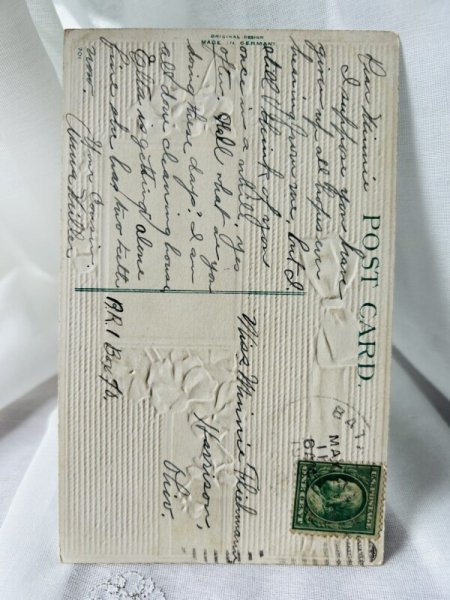 ORIGINAL DESIGN
MADE IN GERMANY
POST CARD.
Dear Minnie
I suppose you have
given up all hopes ever
hearing from me, but I
still think of you
once in a while, yes
often, Well what do you
doing these days? I am
all done cleaning house
Etta is getting alone
fine she has two teeth
now. Your Cousin
701
Miss Minnie
Harrison,
Ohio.
R.R.1 Box
MAY
11
U.S. POSTAGE
ONE CENT